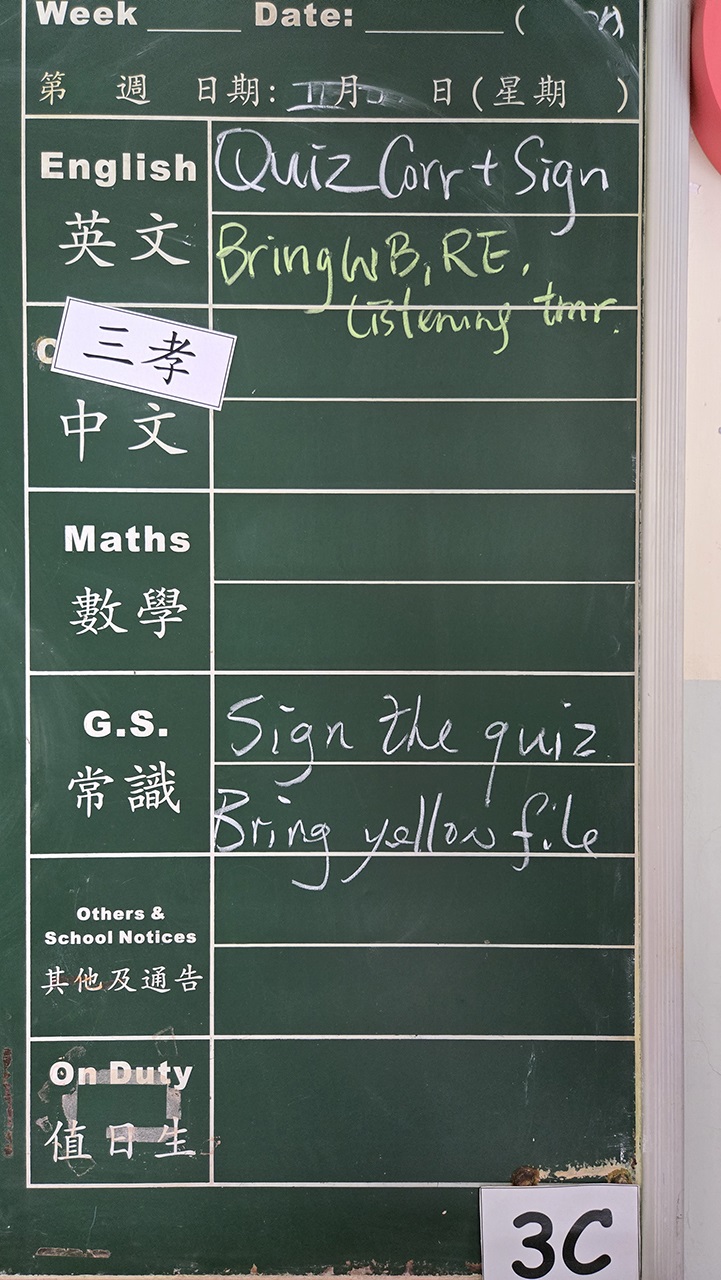 Week ____ Date: ______ (
第 週 日期: 11月 日 (星期 )
English Quiz Corr + Sign
英文 Bring WB, RE,
Listening tmr.
三孝
中文
Maths
數學
G.S. Sign the quiz
常識 Bring yellow file
Others &
School Notices
其他及通告
On Duty
值日生
3C